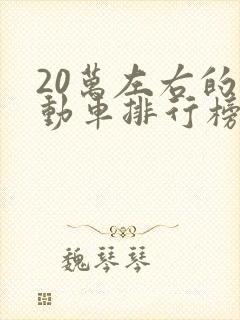 20萬左右的
動車排行榜
魏琴琴